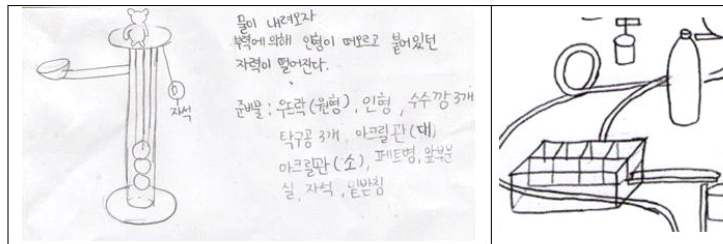 물이 내려오자
부력에 의해 인형이 떠오르고 붙어있던
자력이 떨어진다.
준비물 : 우드락(원형), 인형, 수수깡 3개
탁구공 3개, 아크릴관(대)
아크릴관(소), 페트병, 앞부분
실, 자석, 밑받침
자석